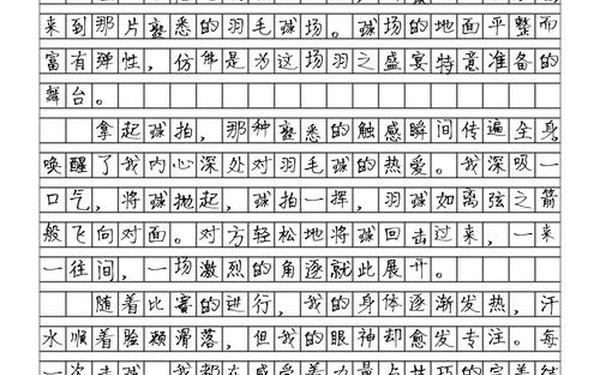 来到那片熟悉的羽毛球场。球场的地面平整而
富有弹性，仿佛是为这场羽之盛宴特意准备的
舞台。
拿起球拍，那种熟悉的触感瞬间传遍全身
唤醒了我内心深处对羽毛球的热爱。我深吸一
口气，将球抛起，球拍一挥，羽球如离弦之箭
般飞向对面。对方轻松地将球回击过来，一来
一往间，一场激烈的角逐就此展开。
随着比赛的进行，我的身体逐渐发热，汗
水顺着脸颊滑落，但我的眼神却愈发专注。每
一次击球，我都在感受着力量与技巧的完美结